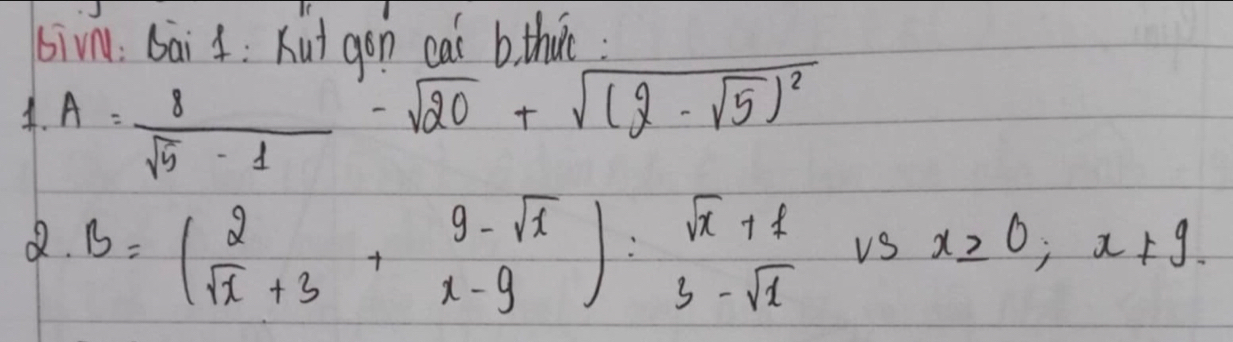 BTVN: Bài 1: Rút gọn các b.thức:
1. A = 8/(√5 - 1) - √20 + √((2 - √5)²)
2. B = (2/(√x + 3) + (9 - √x)/(x - 9)) : (√x + 1)/(3 - √x) vs x ≥ 0; x ≠ 9.